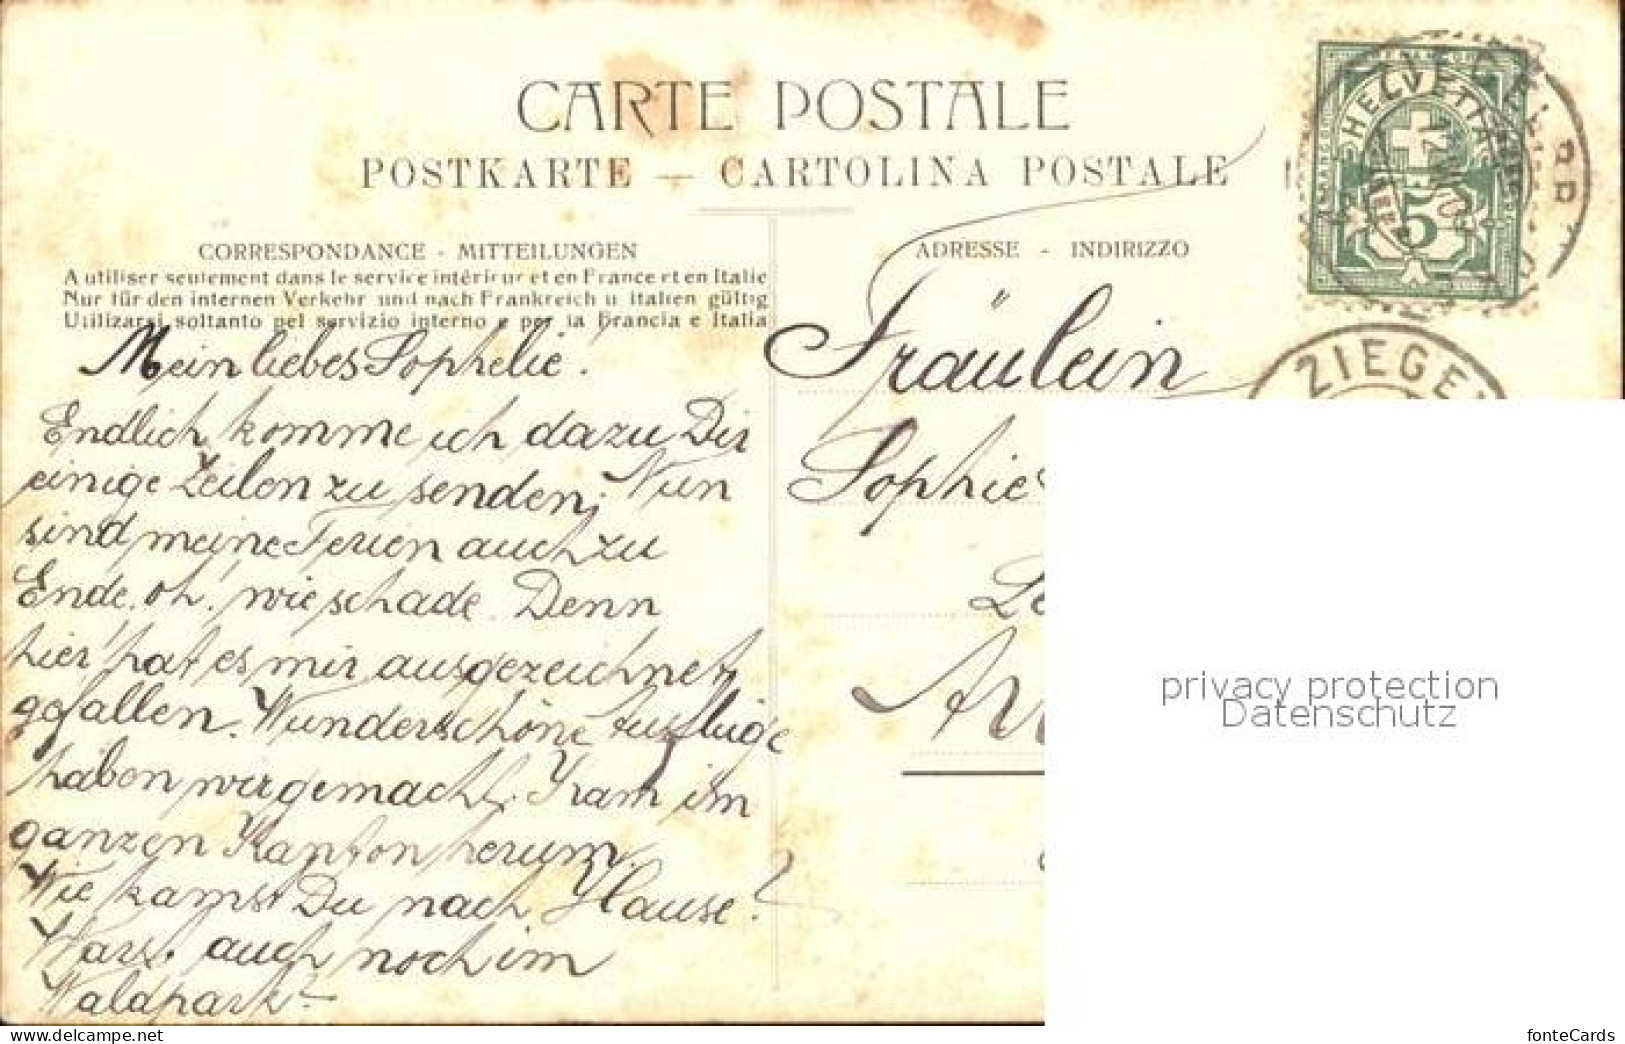 CARTE POSTALE
POSTKARTE — CARTOLINA POSTALE
CORRESPONDANCE - MITTEILUNGEN
A utiliser seulement dans le service intérieur et en France et en Italie
Nur für den internen Verkehr und nach Frankreich u Italien gültig
Utilizarsi soltanto pel servizio interno e per la Francia e Italia
Mein liebes Sophelie!
Endlich komme ich dazu Dir
einige Zeilen zu senden. Nun
sind meine Ferien auch zu
Ende. oh! wie schade. Denn
hier hat es mir ausgezeichnet
gefallen. Wunderschöne Ausflüge
haben wir gemacht. Kam im
ganzen Kanton herum.
Wie kamst Du nach Hause?
Warst auch noch im
Waldpark-
ADRESSE - INDIRIZZO
Fräulein
Sophie
HELVETIA
5
ZIEGE
privacy protection
Datenschutz
www.delcampe.net
fonteCards